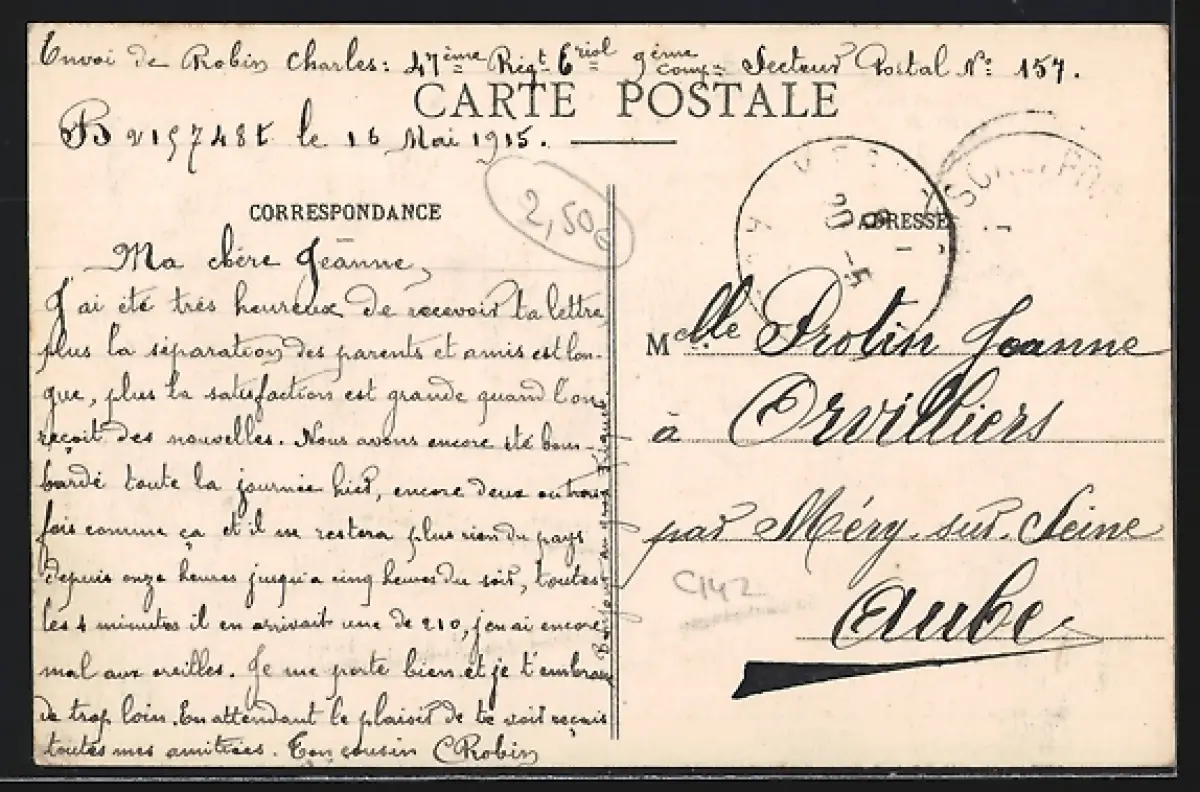 Envoi de Robin Charles: 47ème Régt Erial 9ème comp. Secteur Postal No 157.
CARTE POSTALE
B v15748t le 16 Mai 1915.
CORRESPONDANCE
2,50
Ma chère Jeanne,
J'ai été très heureux de recevoir ta lettre,
plus la séparation des parents et amis est lon-
gue, plus la satisfaction est grande quand l'on
reçoit des nouvelles. Nous avons encore été bom-
bardé toute la journée hier, encore deux ou trois
fois comme ça et il ne restera plus rien du pays
depuis onze heures jusqu'à cinq heures du soir, toutes
les 4 minutes il en arrivait une de 210, j'en ai encore
mal aux oreilles. Je me porte bien et je t'embrasse
de trop loin. En attendant le plaisir de te voir reçois
toutes mes amitiées. Ton cousin CRobin
ADRESSE
Melle Protin Jeanne
à Orvilliers
par Méry-sur-Seine
C142
Aube